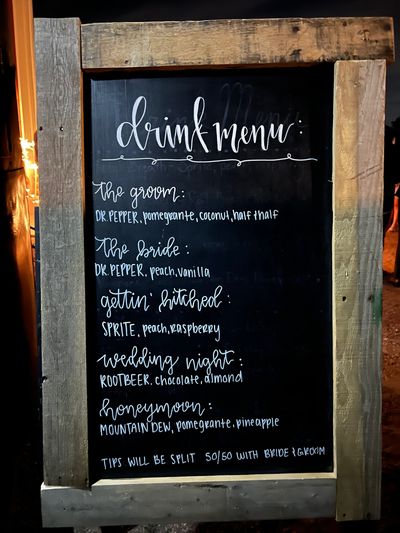 drink menu:
the groom:
DR. PEPPER, pomegrante, coconut, half + half
the bride:
DR. PEPPER, peach, vanilla
gettin' hitched:
SPRITE, peach, raspberry
wedding night:
ROOTBEER, chocolate, almond
honeymoon:
MOUNTAIN DEW, pomegrante, pineapple
TIPS WILL BE SPLIT 50/50 WITH BRIDE & GROOM